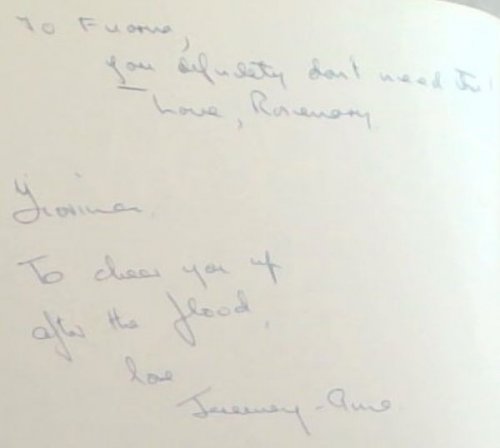 To Fiona,
you definitely don't need this!
Love, Rosemary
Fiona
To cheer you up
after the flood,
love